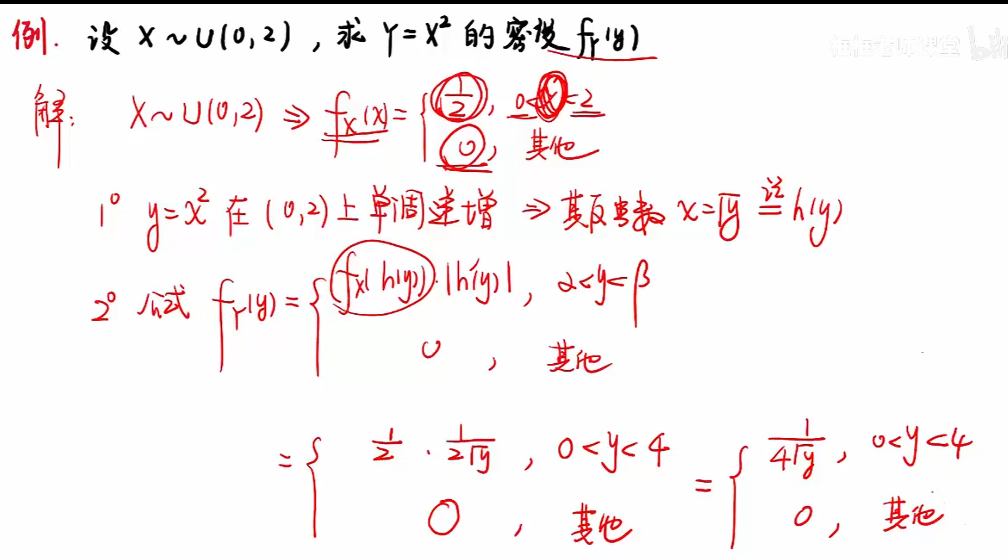 例. 设 X~U(0,2), 求 Y=X² 的密度 f_Y(y)
解: X~U(0,2) ⇒ f_X(x)= { 1/2, 0<x<2
0, 其他
1° y=x² 在 (0,2) 上单调递增 ⇒ 其反函数 x=√y 设= h(y)
2° 公式 f_Y(y)= { f_X(h(y))·|h'(y)|, α<y<β
0, 其他
= { 1/2 · 1/(2√y), 0<y<4 = { 1/(4√y), 0<y<4
0, 其他 0, 其他